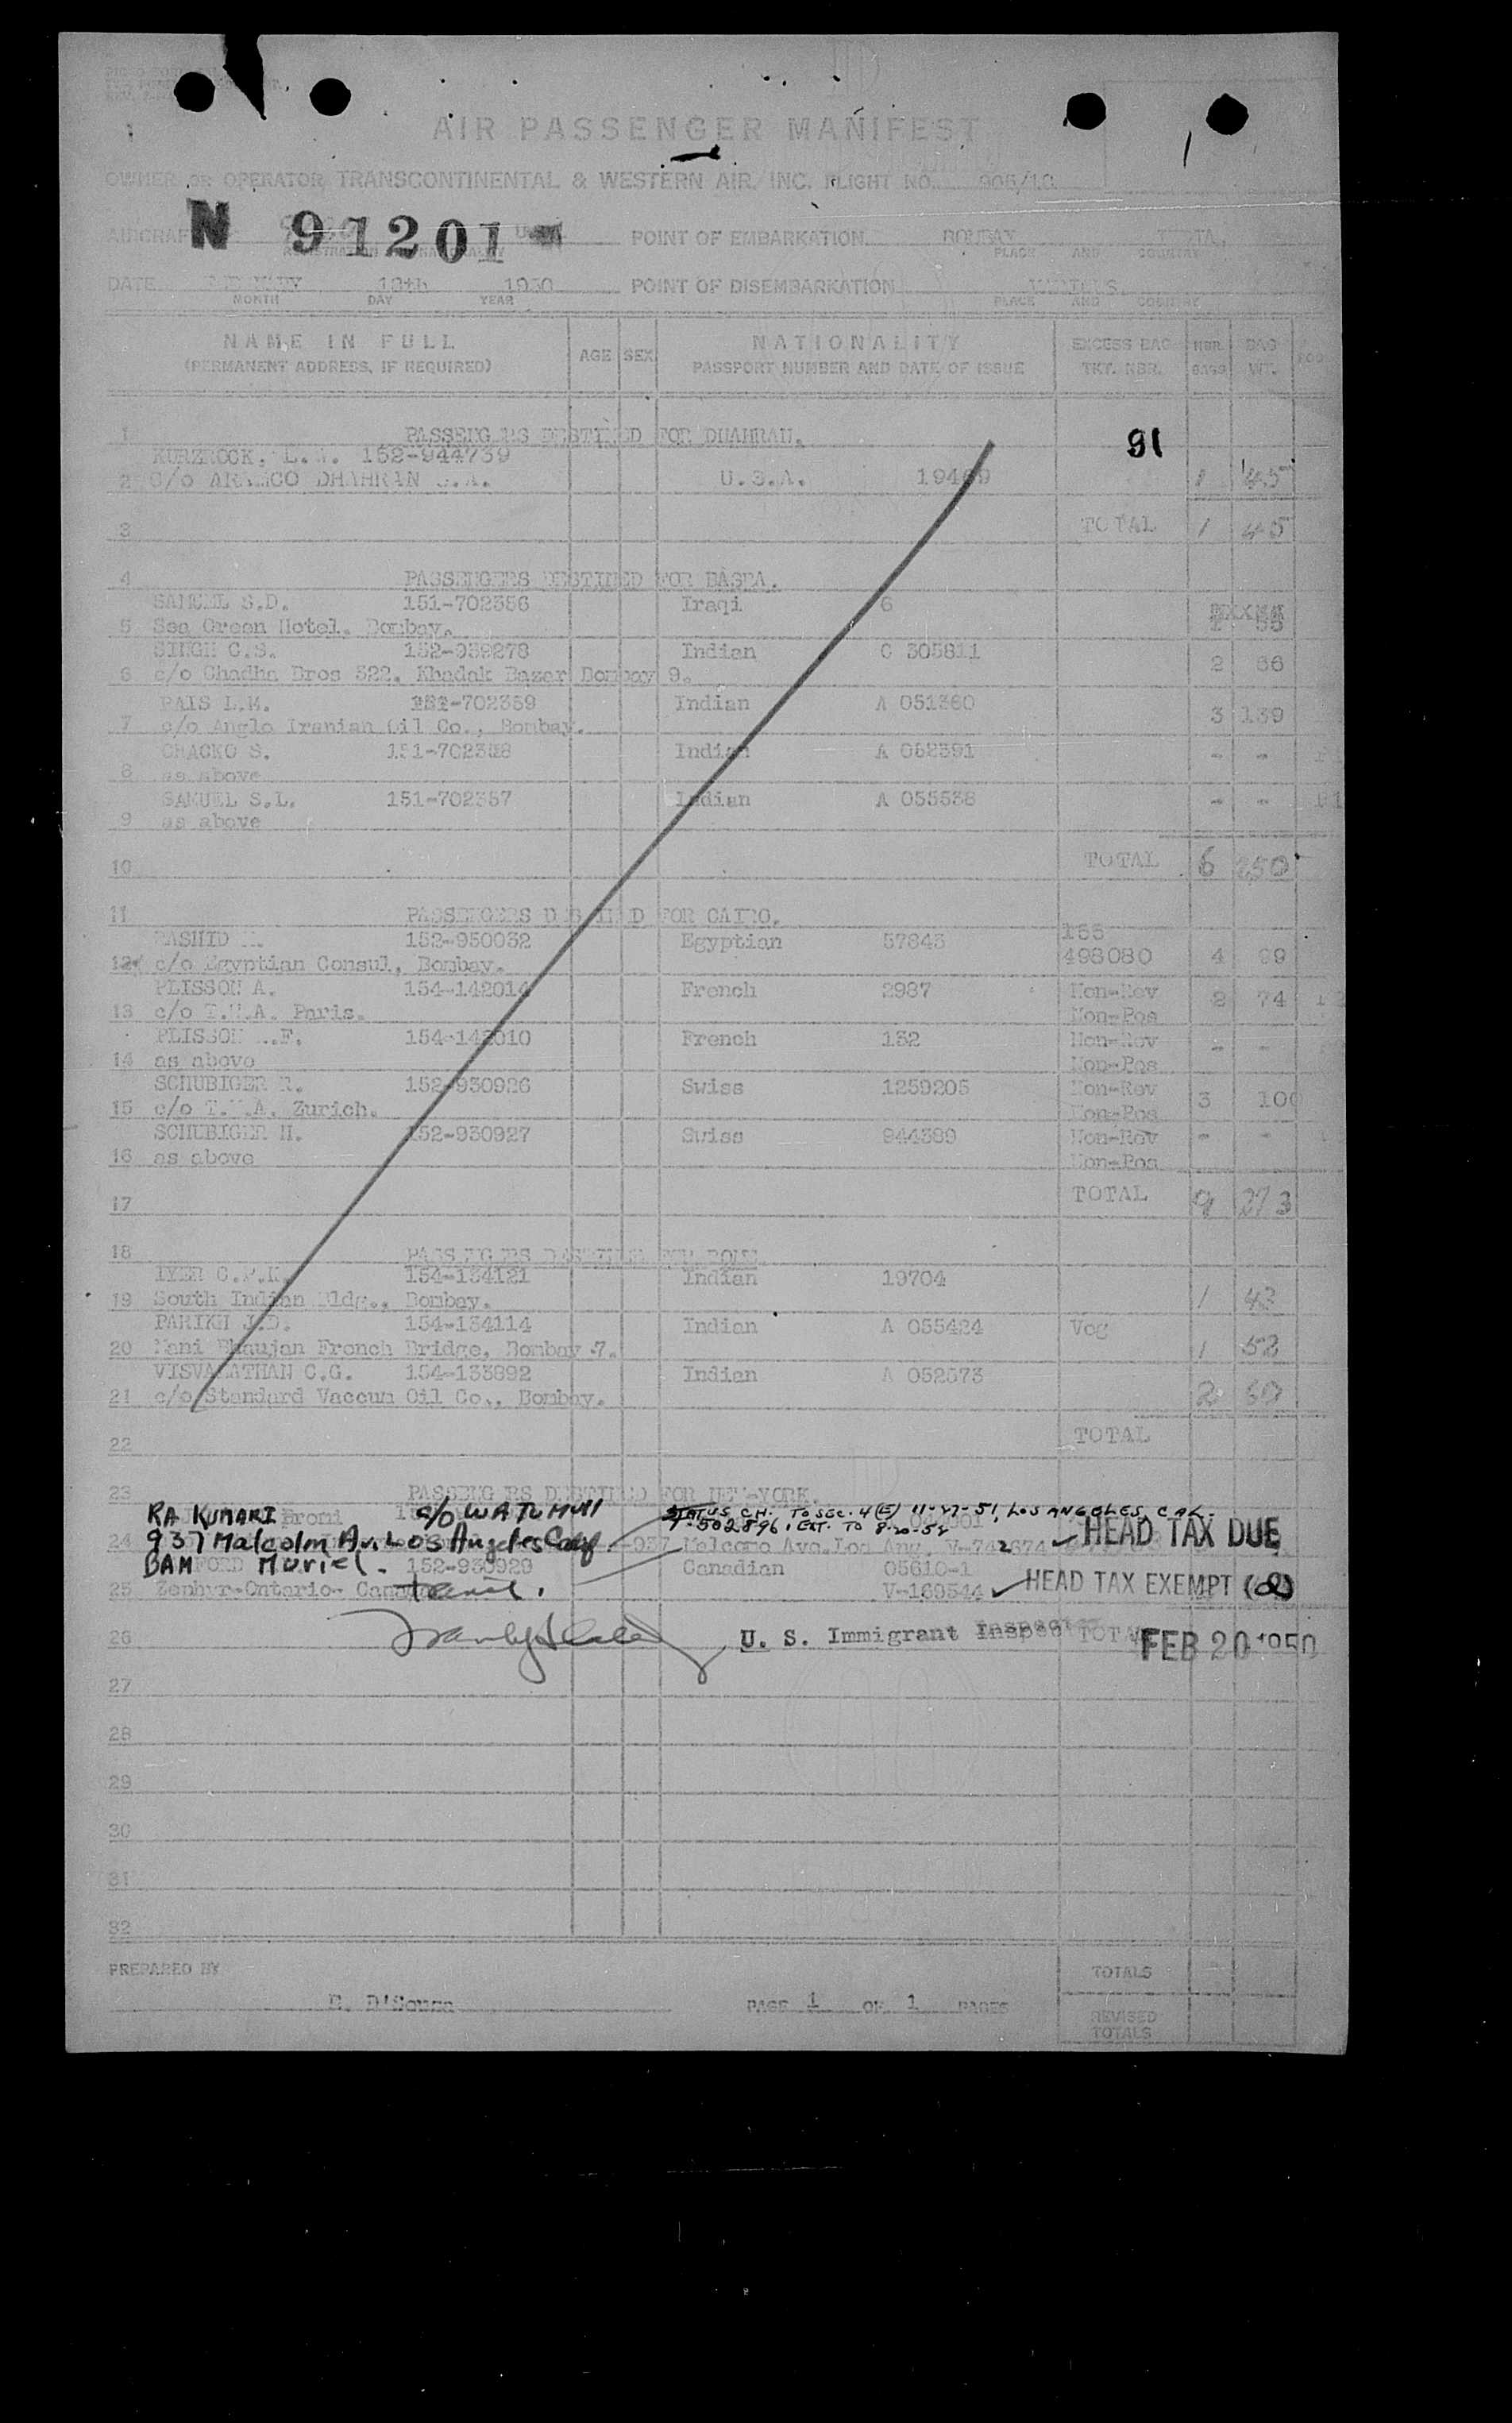 AIR PASSENGER MANIFEST
OWNER OR OPERATOR TRANSCONTINENTAL & WESTERN AIR, INC. FLIGHT NO. 905/18
N 91201
POINT OF EMBARKATION BOMBAY
PLACE AND COUNTRY
DATE 18th 1950 POINT OF DISEMBARKATION
MONTH DAY YEAR PLACE AND COUNTRY
NAME IN FULL AGE SEX NATIONALITY EXCESS BAG NBR. BAG
(PERMANENT ADDRESS, IF REQUIRED) PASSPORT NUMBER AND DATE OF ISSUE TKT. NBR. BAGS WT.
1 PASSENGERS DESTINED FOR DHAHRAN. 91
KURZROCK, 152-944739
2 C/o ARAMCO DHAHRAN S.A. U.S.A. 1 45
3 TOTAL 1 45
4 PASSENGERS DESTINED FOR BASRA.
SAMUEL S.D. 151-702356 Iraqi 6
5 Sea Green Hotel, Bombay.
SINGH C.S. 152-939278 Indian C 305811
6 c/o Chadha Bros 322, Khadak Bazar Bombay 9. 2 66
PAIS L.M. 151-702359 Indian A 051360
7 c/o Anglo Iranian Oil Co., Bombay. 3 139
CHACKO S. Indian A 052391
8 as above - -
SAMUEL S.L. 151-702357 Indian A 055538 - -
9 as above
10 TOTAL 6 250
11 PASSENGERS DESTINED FOR CAIRO.
RASHID 152-950032 Egyptian 57843
12 c/o Egyptian Consul, Bombay. 498080 4 99
PLISSON A. 154-142014 French 2987 Non-Rev 2 74
13 c/o T.W.A. Paris. Non-Pos
PLISSON 154-142010 French 132 Non-Rev - -
14 as above Non-Pos
SCHUBIGER R. 152-930926 Swiss 1259205 Non-Rev
15 c/o T.W.A. Zurich. Non-Pos 3 100
SCHUBIGER H. 152-930927 Swiss 944389 Non-Rev - -
16 as above Non-Pos
17 TOTAL 9 273
18 PASSENGERS DESTINED FOR ROME
IYER C.P.K. 154-134121 Indian 19704
19 South Indian Bldg., Bombay. 1 43
PARIKH J.D. 154-134114 Indian A 055424 Veg
20 Mani Bhaujan French Bridge, Bombay 7. 1 52
VISVANATHAN C.G. 154-133892 Indian A 052573
21 c/o Standard Vaccum Oil Co., Bombay. 2 60
22 TOTAL
23 PASSENGERS DESTINED FOR NEW-YORK.
RA KUMARI c/o WATUMULL STATUS CH. TO SEC. 4(E) 11-27-51, LOS ANGELES, CAL.
T-502896, EXT. TO 8-20-52
24 937 Malcolm Av. Los Angeles Calif. HEAD TAX DUE
BAMFORD Muriel. 152-930929 Canadian 05610-1
25 Zephyr-Ontario- V-169544 HEAD TAX EXEMPT
26 U. S. Immigrant Inspector TOTAL FEB 20 1950
27
28
29
30
31
32
PREPARED BY TOTALS
D'Souza PAGE 1 OF 1 PAGES
REVISED
TOTALS